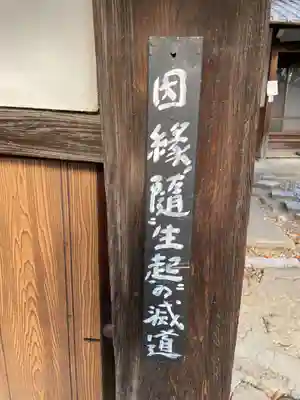 因縁隨生起の滅道